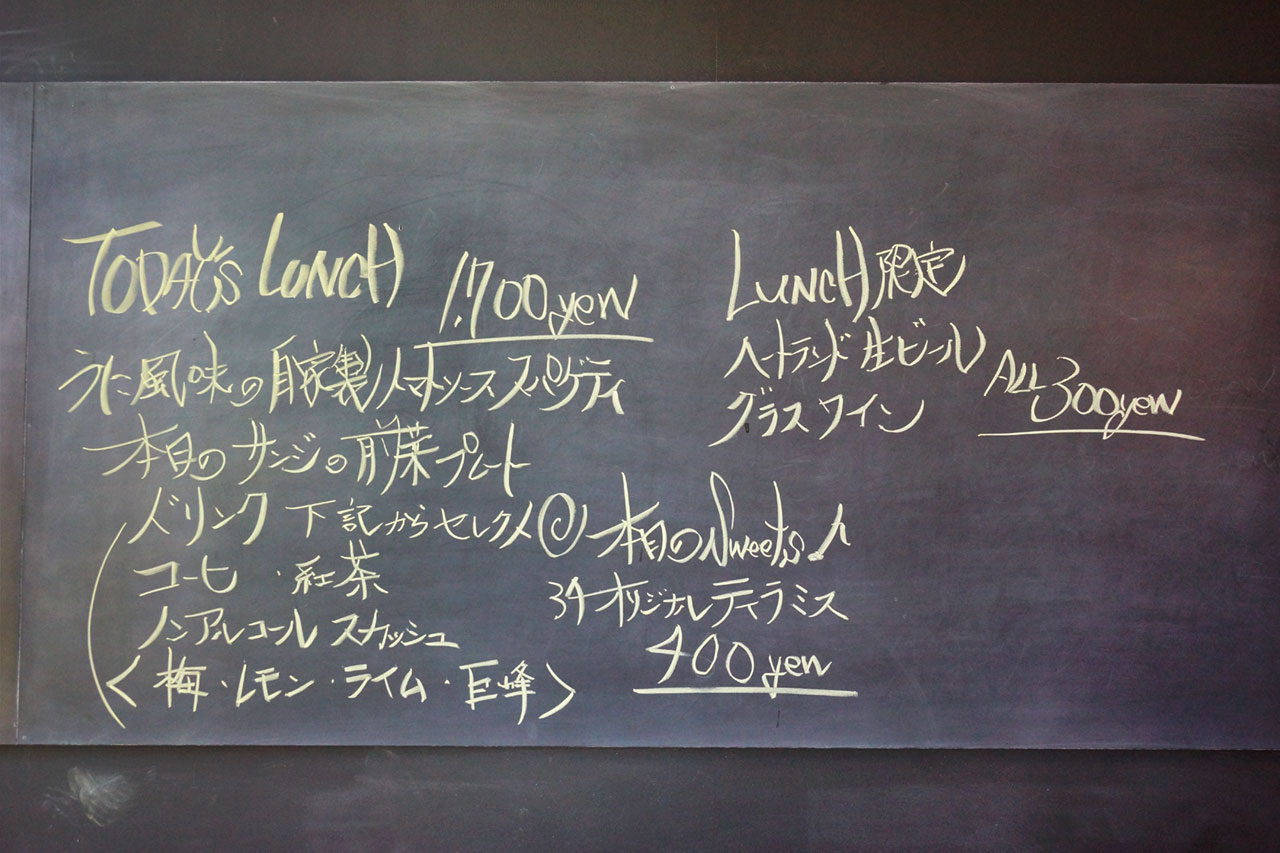 TODAY'S LUNCH 1.700yen
うに風味の自家製トマトソーススパゲティ
本日のサンジの前菜プレート
ドリンク 下記からセレクト
コーヒ ・紅茶
ノンアルコール スカッシュ
<梅・レモン・ライム・巨峰>
LUNCH限定
ハートランド生ビール
グラスワイン
ALL 300yen
本日のSweets♪
34オリジナルティラミス
400yen